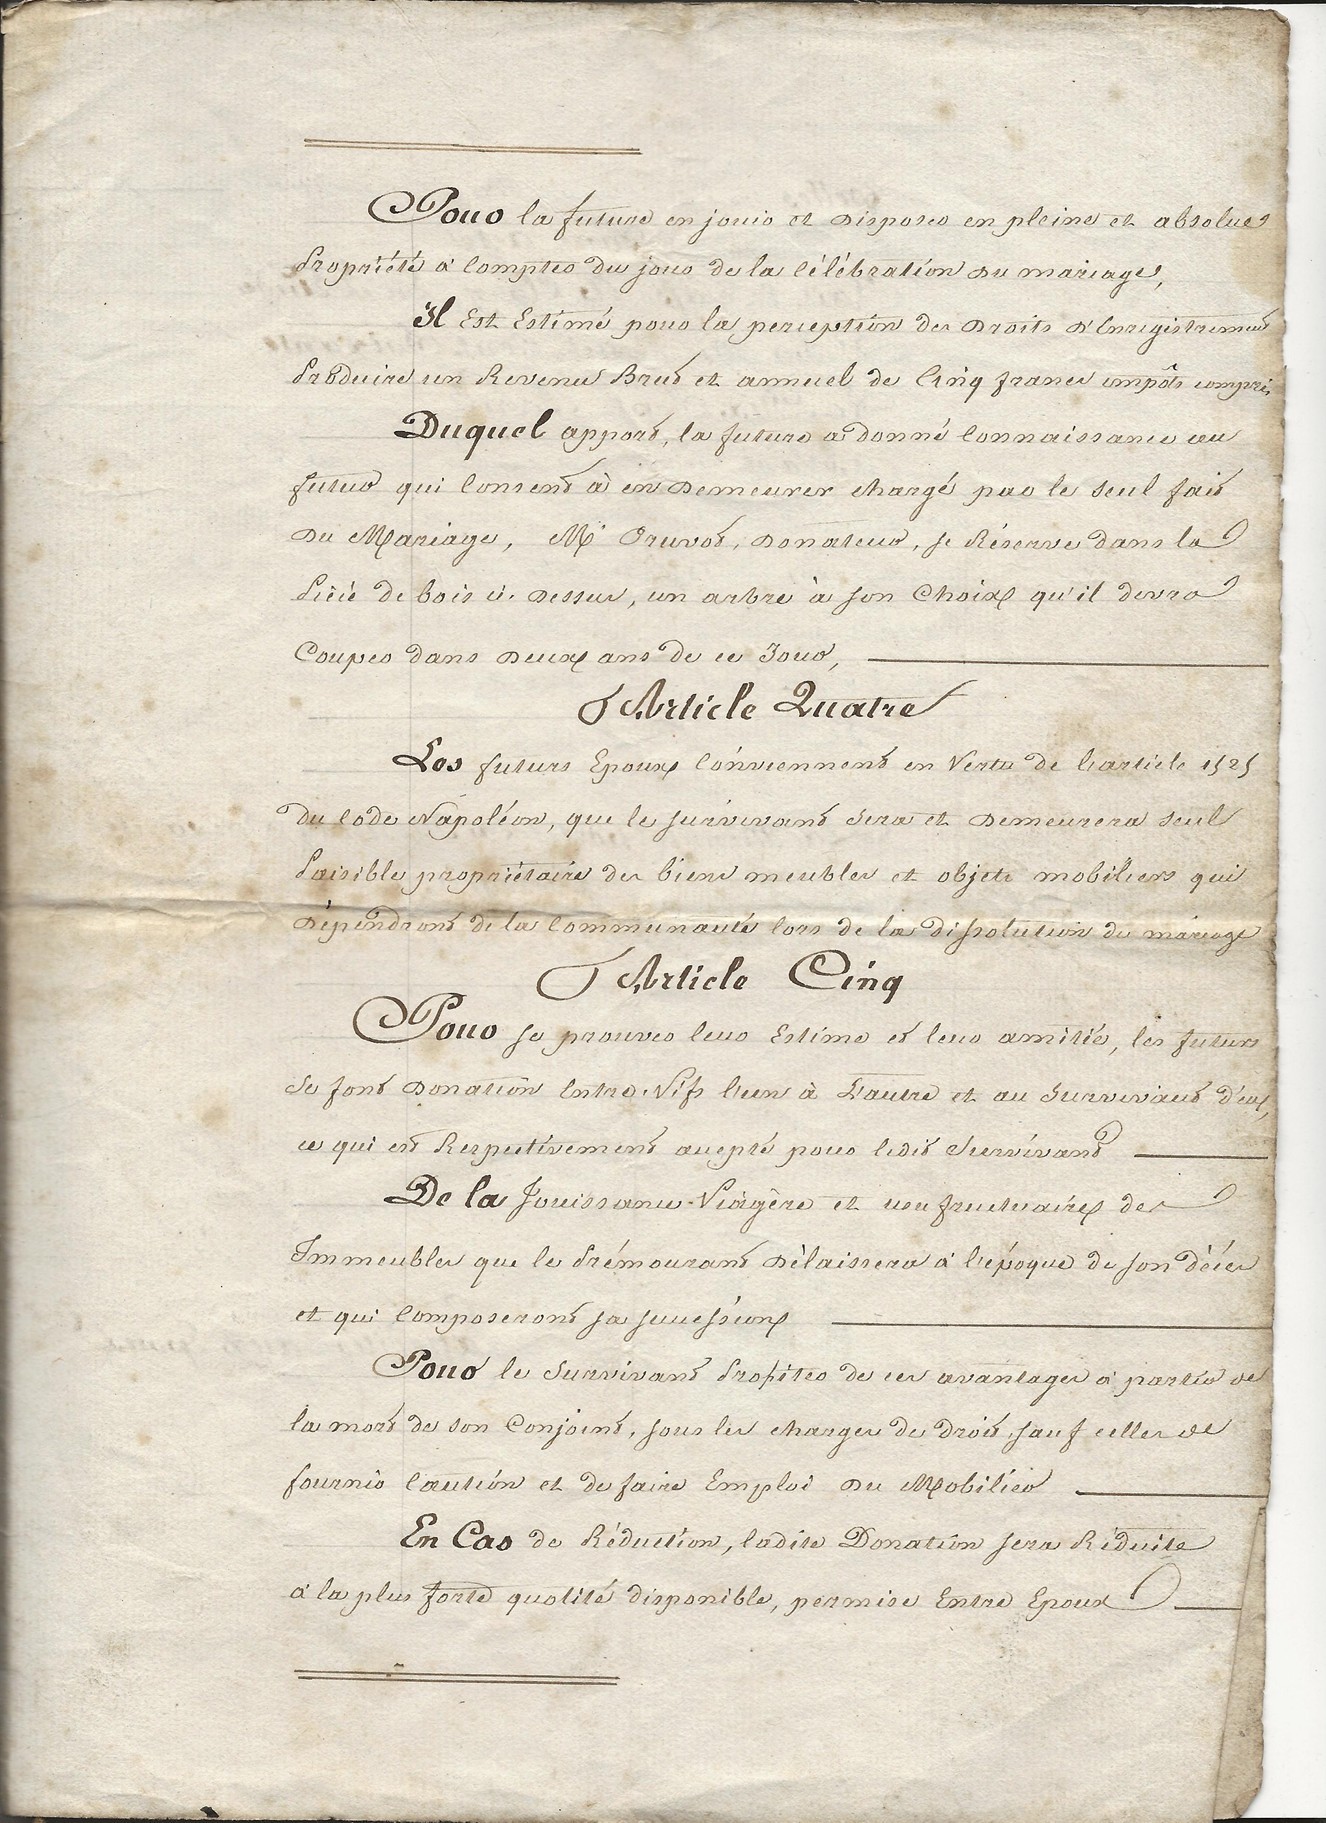 Pour la future en jouir et disposer en pleine et absolue
propriété à compter du jour de la célébration du mariage,
Il Est Estimé pour la perception des droits d'Enregistrement
produire un Revenu Brut et annuel de Cinq francs impôts compris
Duquel apport, la future a donné Connaissance au
futur qui Consent à en demeurer chargé par le seul fait
du Mariage, Mr Pruvot, donateur, se Réserve dans la
Pièce de bois ci-dessus, un arbre à son Choix qu'il devra
Couper dans deux ans de ce Jour,
Article Quatre
Les futurs Epoux Conviennent en Vertu de l'article 1525
du Code Napoléon, que le survivant sera et demeurera seul
Paisible propriétaire des biens meubles et objets mobiliers qui
dépendront de la Communauté lors de la dissolution du mariage
Article Cinq
Pour se prouver leur Estime et leur amitié, les futurs
Se font donation Entre-Vifs l'un à L'autre et au Survivant d'eux,
ce qui est Respectivement accepté pour ledit Survivant
De la Jouissance Viagère et usufructuaire des
Immeubles que le Prémourant délaissera à l'époque de son décès
et qui Composeront sa succession
Pour le Survivant Profiter de ces avantages à partir de
la mort de son Conjoint, sous les charges de droit, sauf celles de
fournir Caution et de faire Emploi du Mobilier
En Cas de Réduction, ladite Donation sera Réduite
à la plus forte quotité disponible, permise Entre Epoux